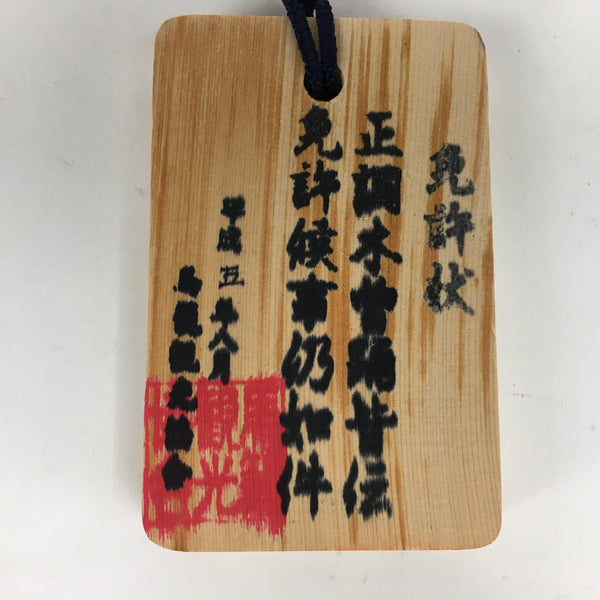 免許状
正調木曽踊皆伝
免許候事仍如件
平成五年八月
観光